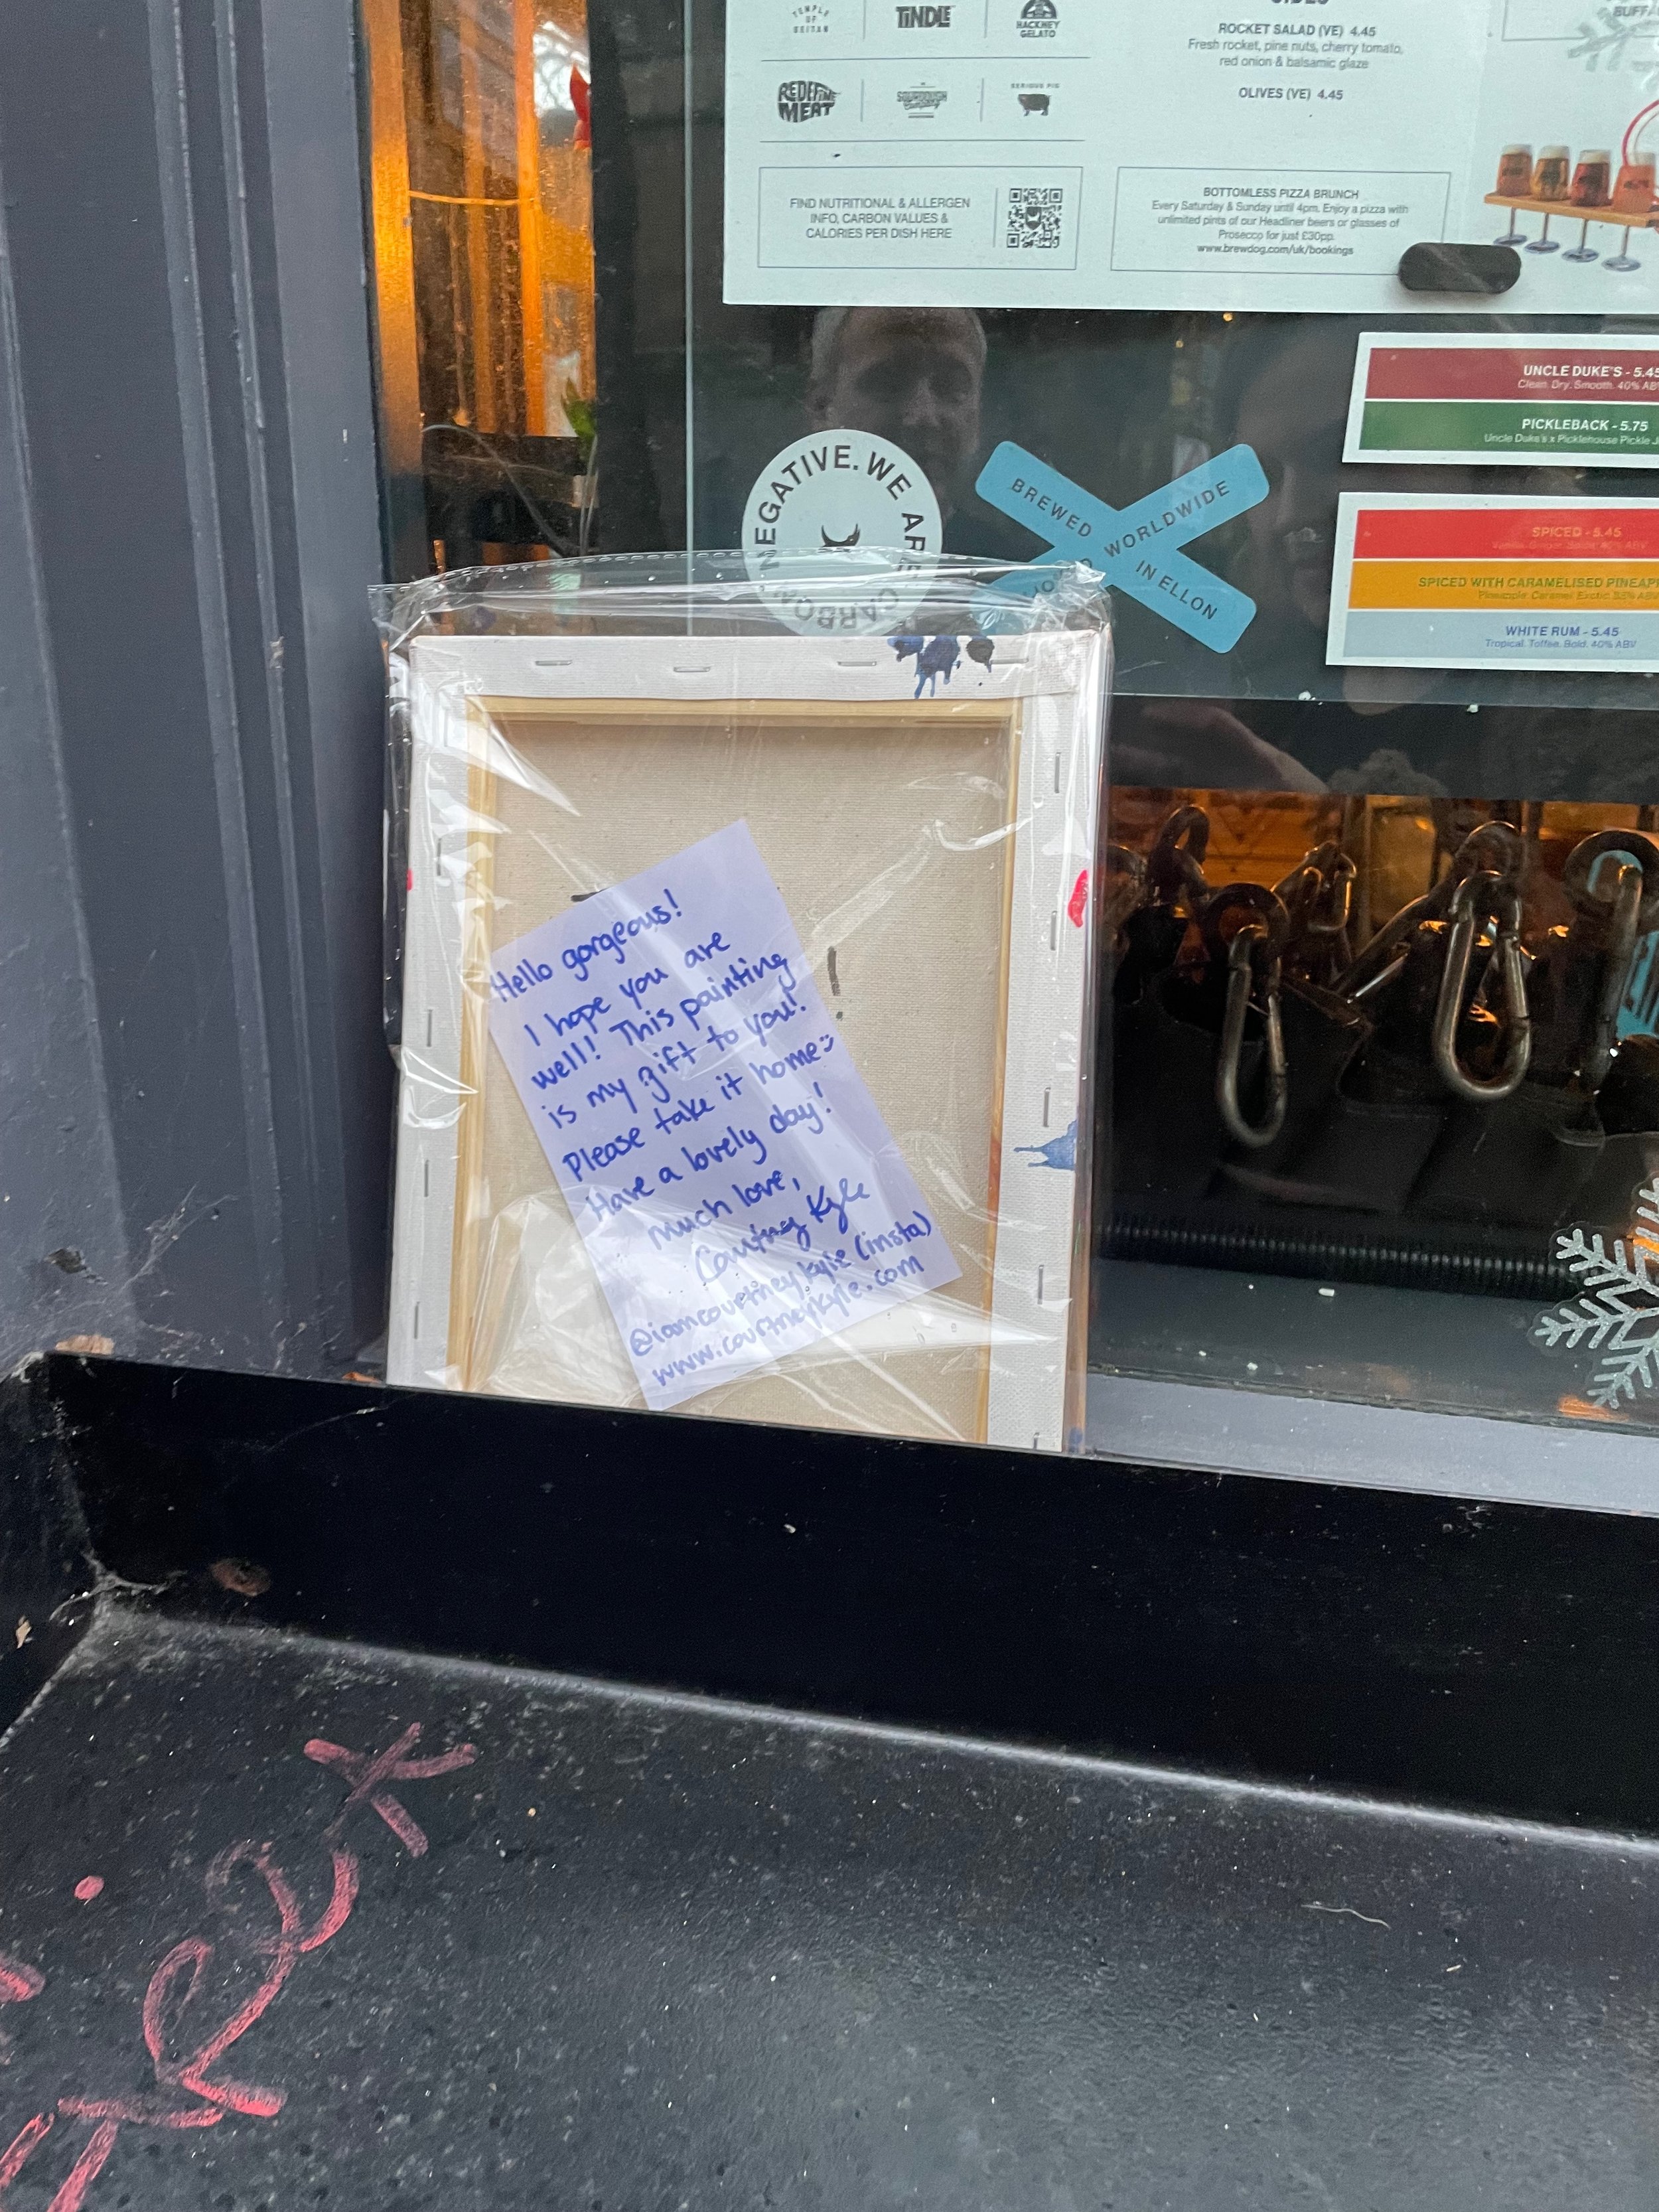 TEMPLE
OF
SEITAN
TiNDLE
HACKNEY
GELATO
REDEFINE
MEAT
SOURDOUGH
SERIOUS PIG
FIND NUTRITIONAL & ALLERGEN
INFO, CARBON VALUES &
CALORIES PER DISH HERE
SIDES
ROCKET SALAD (VE) 4.45
Fresh rocket, pine nuts, cherry tomato,
red onion & balsamic glaze
OLIVES (VE) 4.45
BOTTOMLESS PIZZA BRUNCH
Every Saturday & Sunday until 4pm. Enjoy a pizza with
unlimited pints of our Headliner beers or glasses of
Prosecco for just £30pp.
www.brewdog.com/uk/bookings
UNCLE DUKE'S - 5.45
Clean. Dry. Smooth. 40% AB
PICKLEBACK - 5.75
Uncle Duke's x Picklehouse Pickle J
NEGATIVE. WE ARE CARBO
BREWED WORLDWIDE
IN ELLON
SPICED - 5.45
SPICED WITH CARAMELISED PINEAP
WHITE RUM - 5.45
Tropical. Toffee. Bold. 40% ABV
Hello gorgeous!
I hope you are
well! This painting
is my gift to you!
Please take it home :)
Have a lovely day!
Much love,
Courtney Kyle
@iamcourtneykylie (insta)
www.courtneykyle.com